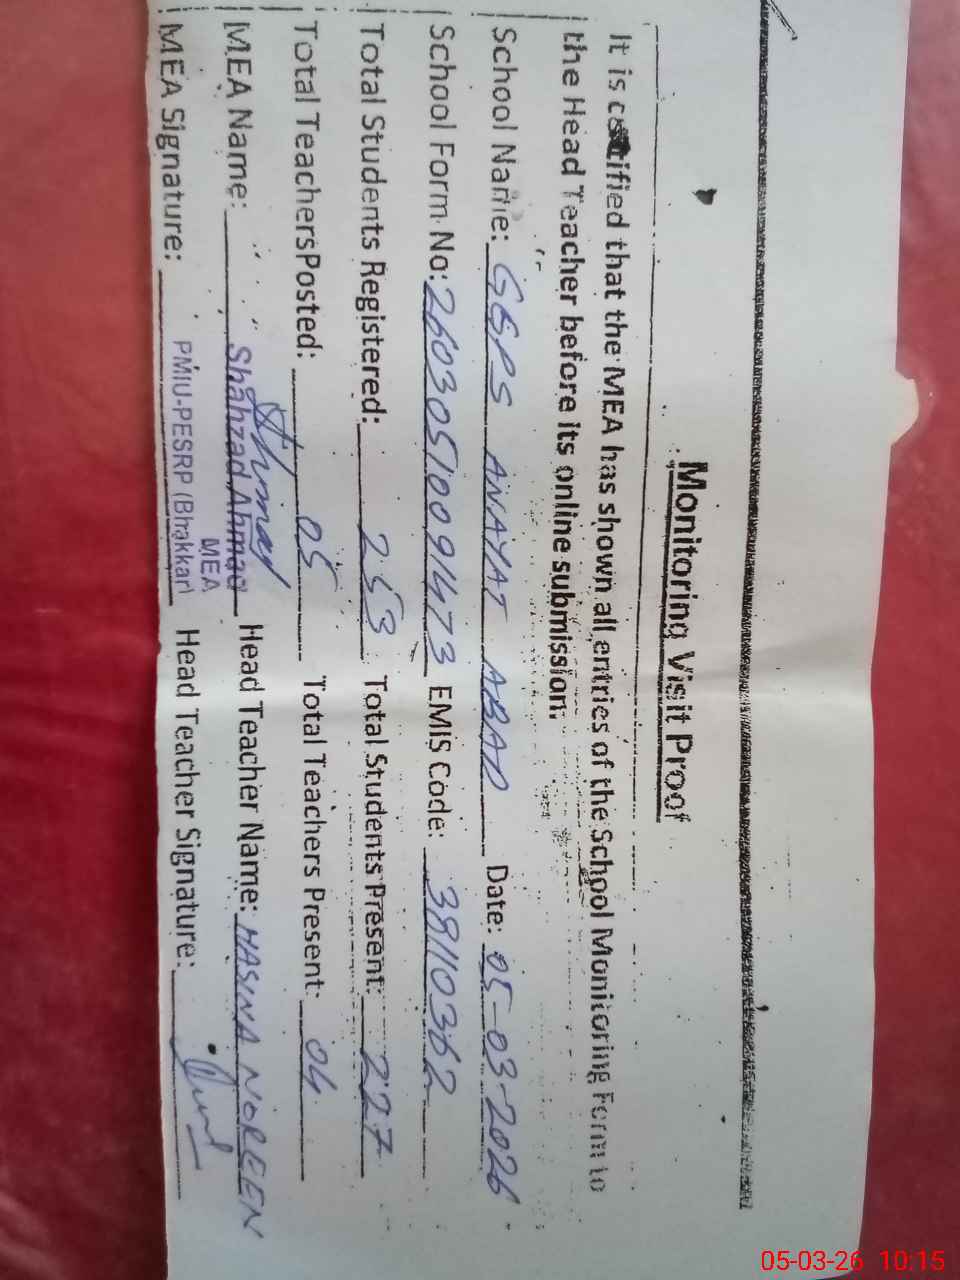 Monitoring Visit Proof
It is certified that the MEA has shown all entries of the School Monitoring Form to
the Head Teacher before its online submission.
School Name: GGPS ANAYAT ABAD Date: 05-03-2026
School Form No: 26030510091473 EMIS Code: 38110362
Total Students Registered: 253 Total Students Present: 227
Total TeachersPosted: 05 Total Teachers Present: 04
MEA Name: Shahzad Ahmad Head Teacher Name: HASINA NOREEN
MEA
MEA Signature: PMIU-PESRP (Bhakkar) Head Teacher Signature:
05-03-26 10:15